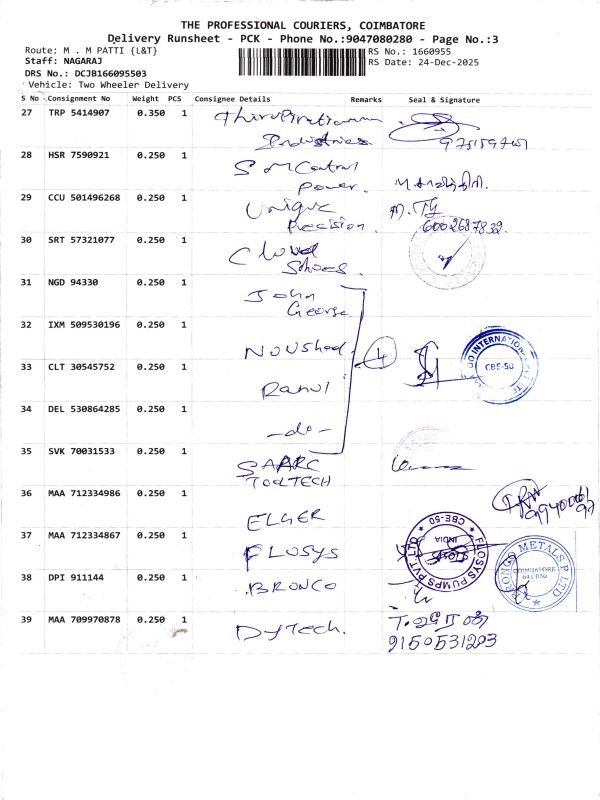 THE PROFESSIONAL COURIERS, COIMBATORE
Delivery Runsheet - PCK - Phone No.:9047080280 - Page No.:3
Route: M . M PATTI {L&T}
RS No.: 1660955
Staff: NAGARAJ
RS Date: 24-Dec-2025
DRS No.: DCJB166095503
Vehicle: Two Wheeler Delivery
S No Consignment No Weight PCS Consignee Details Remarks Seal & Signature
27 TRP 5414907 0.350 1
Industries
28 HSR 7590921 0.250 1 S M Control
Power.
29 CCU 501496268 0.250 1 Unique
Precision. 6002687832.
30 SRT 57321077 0.250 1 Cloud
Shoes.
31 NGD 94330 0.250 1 John
George
32 IXM 509530196 0.250 1 Noushad. 4
CBE-50
33 CLT 30545752 0.250 1 Rahul
34 DEL 530864285 0.250 1 -do-
35 SVK 70031533 0.250 1 SAARC
TOOLTECH
36 MAA 712334986 0.250 1 ELGER
37 MAA 712334867 0.250 1 FLOSYS
FLOSYS PUMPS PVT. LTD
CBE-50
INDIA
METALS P LTD
COIMBATORE
641 050
38 DPI 911144 0.250 1 BRONCO
39 MAA 709970878 0.250 1 Dytech.
9150531293